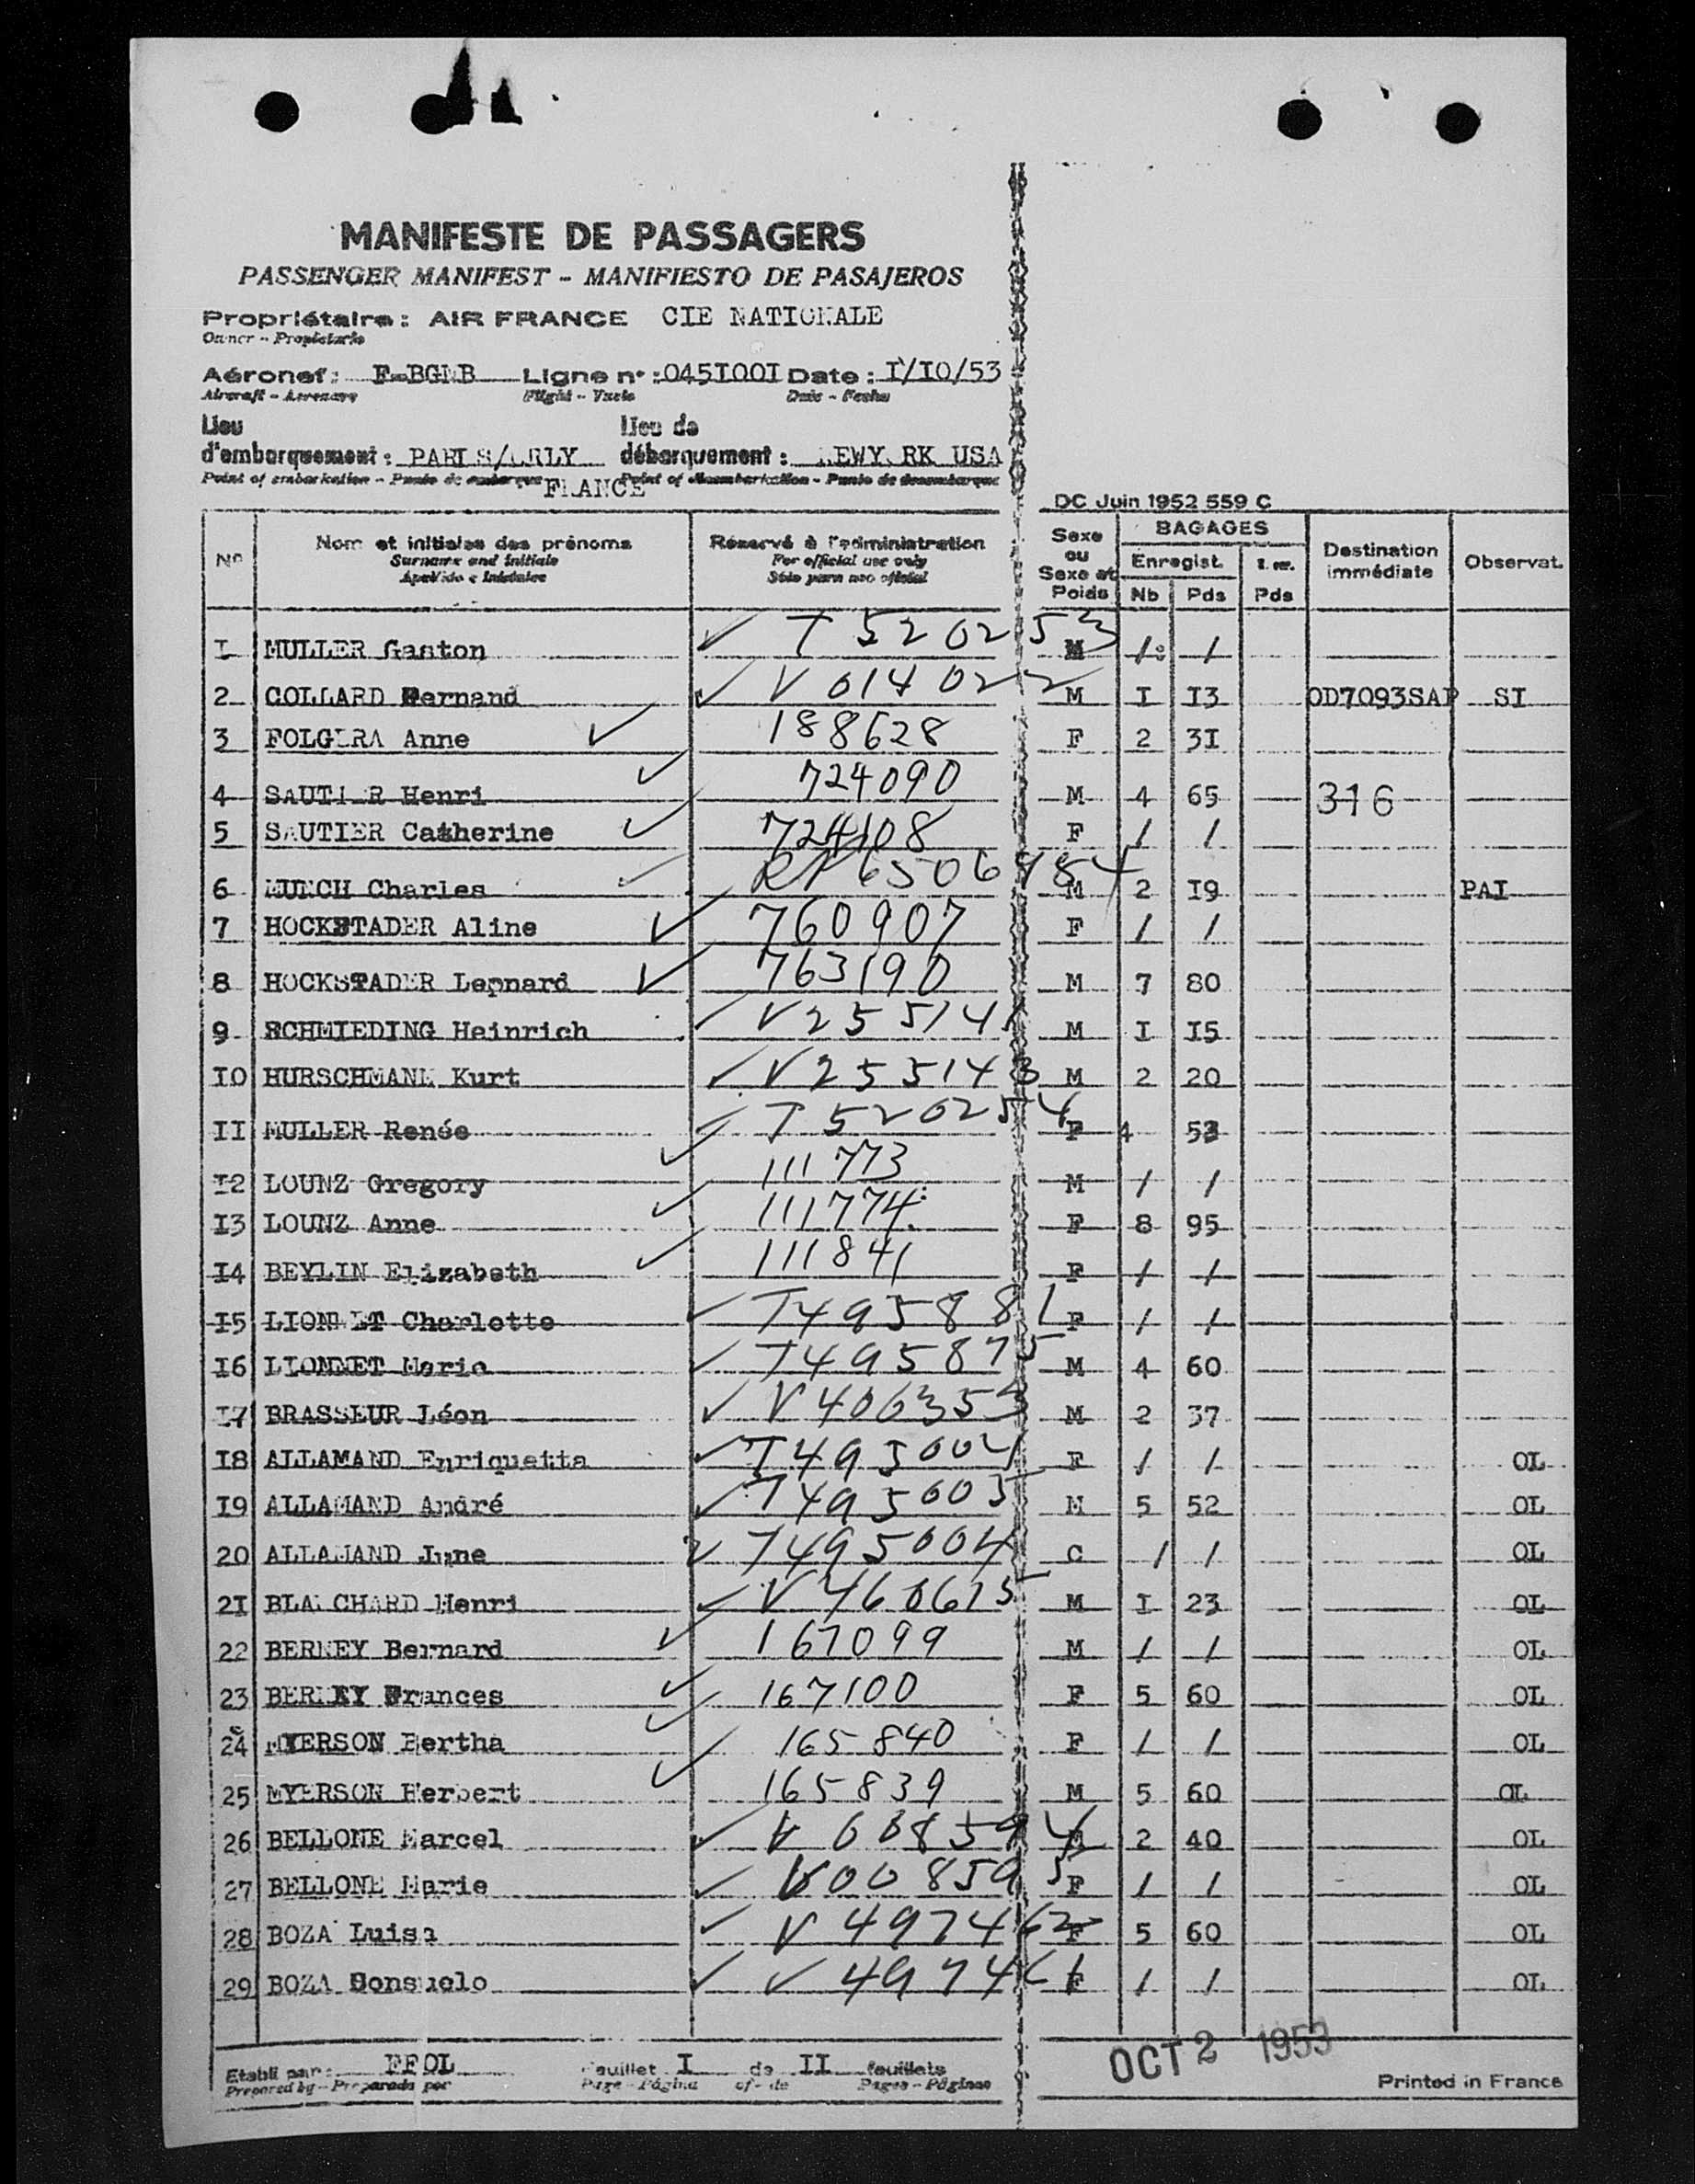 MANIFESTE DE PASSAGERS
PASSENGER MANIFEST - MANIFIESTO DE PASAJEROS
Propriétaire : AIR FRANCE CIE NATIONALE
Owner - Propietario
Aéronef : F-BGNB Ligne n° : 045I00I Date : I/I0/53
Aircraft - Aeronave Flight - Vuelo Date - Fecha
Lieu d'embarquement : PARIS/ORLY FRANCE Lieu de débarquement : NEWYORK USA
Point of embarkation - Punto de embarque Point of disembarkation - Punto de desembarque
DC Juin 1952 559 C
N° Nom et initiales des prénoms Réservé à l'administration Sexe ou Sexe et Poids BAGAGES Destination immédiate Observat.
Surname and initials For official use only Enregist.
Apellido e Iniciales Sólo para uso oficial Nb Pds Pds
I MULLER Gaston ✓ T 520253 M / /
2 COLLARD Fernand ✓ V 014022 M I I3 OD7093SAP SI
3 FOLGERA Anne ✓ 188628 F 2 3I
4 SAUTIER Henri ✓ 724090 M 4 65 316
5 SAUTIER Catherine ✓ 724108 F / /
6 MUNCH Charles ✓ M 2 I9 PAI
7 HOCKSTADER Aline ✓ 760907 F / /
8 HOCKSTADER Leonard ✓ 763190 M 7 80
9 SCHMIEDING Heinrich ✓ V 255141 M I I5
I0 HURSCHMANN Kurt ✓ V 255143 M 2 20
II MULLER Renée ✓ T 520254 F 4 53
I2 LOUNZ Gregory ✓ 111773 M / /
I3 LOUNZ Anne ✓ 111774 F 8 95
I4 BEYLIN Elizabeth ✓ 111841 F / /
I5 LIONNET Charlotte ✓ T495881 F / /
I6 LIONNET Mario ✓ T495875 M 4 60
I7 BRASSEUR Léon ✓ V 406353 M 2 37
I8 ALLAMAND Enriquetta ✓ F / / OL
I9 ALLAMAND André ✓ T495003 M 5 52 OL
20 ALLAMAND June ✓ T495004 C / / OL
2I BLANCHARD Henri ✓ V 460615 M I 23 OL
22 BERNEY Bernard ✓ 167099 M / / OL
23 BERNEY Frances ✓ 167100 F 5 60 OL
24 MYERSON Bertha ✓ 165840 F / / OL
25 MYERSON Herbert ✓ 165839 M 5 60 OL
26 BELLONE Marcel ✓ V 008594 M 2 40 OL
27 BELLONE Marie ✓ V008595 F / / OL
28 BOZA Luisa ✓ V 497462 F 5 60 OL
29 BOZA Consuelo ✓ V 497461 F / / OL
OCT 2 1953
Etabli par : FFOL Feuillet I de II feuillets
Prepared by - Preparado por Page - Página of - de Pages - Páginas
Printed in France